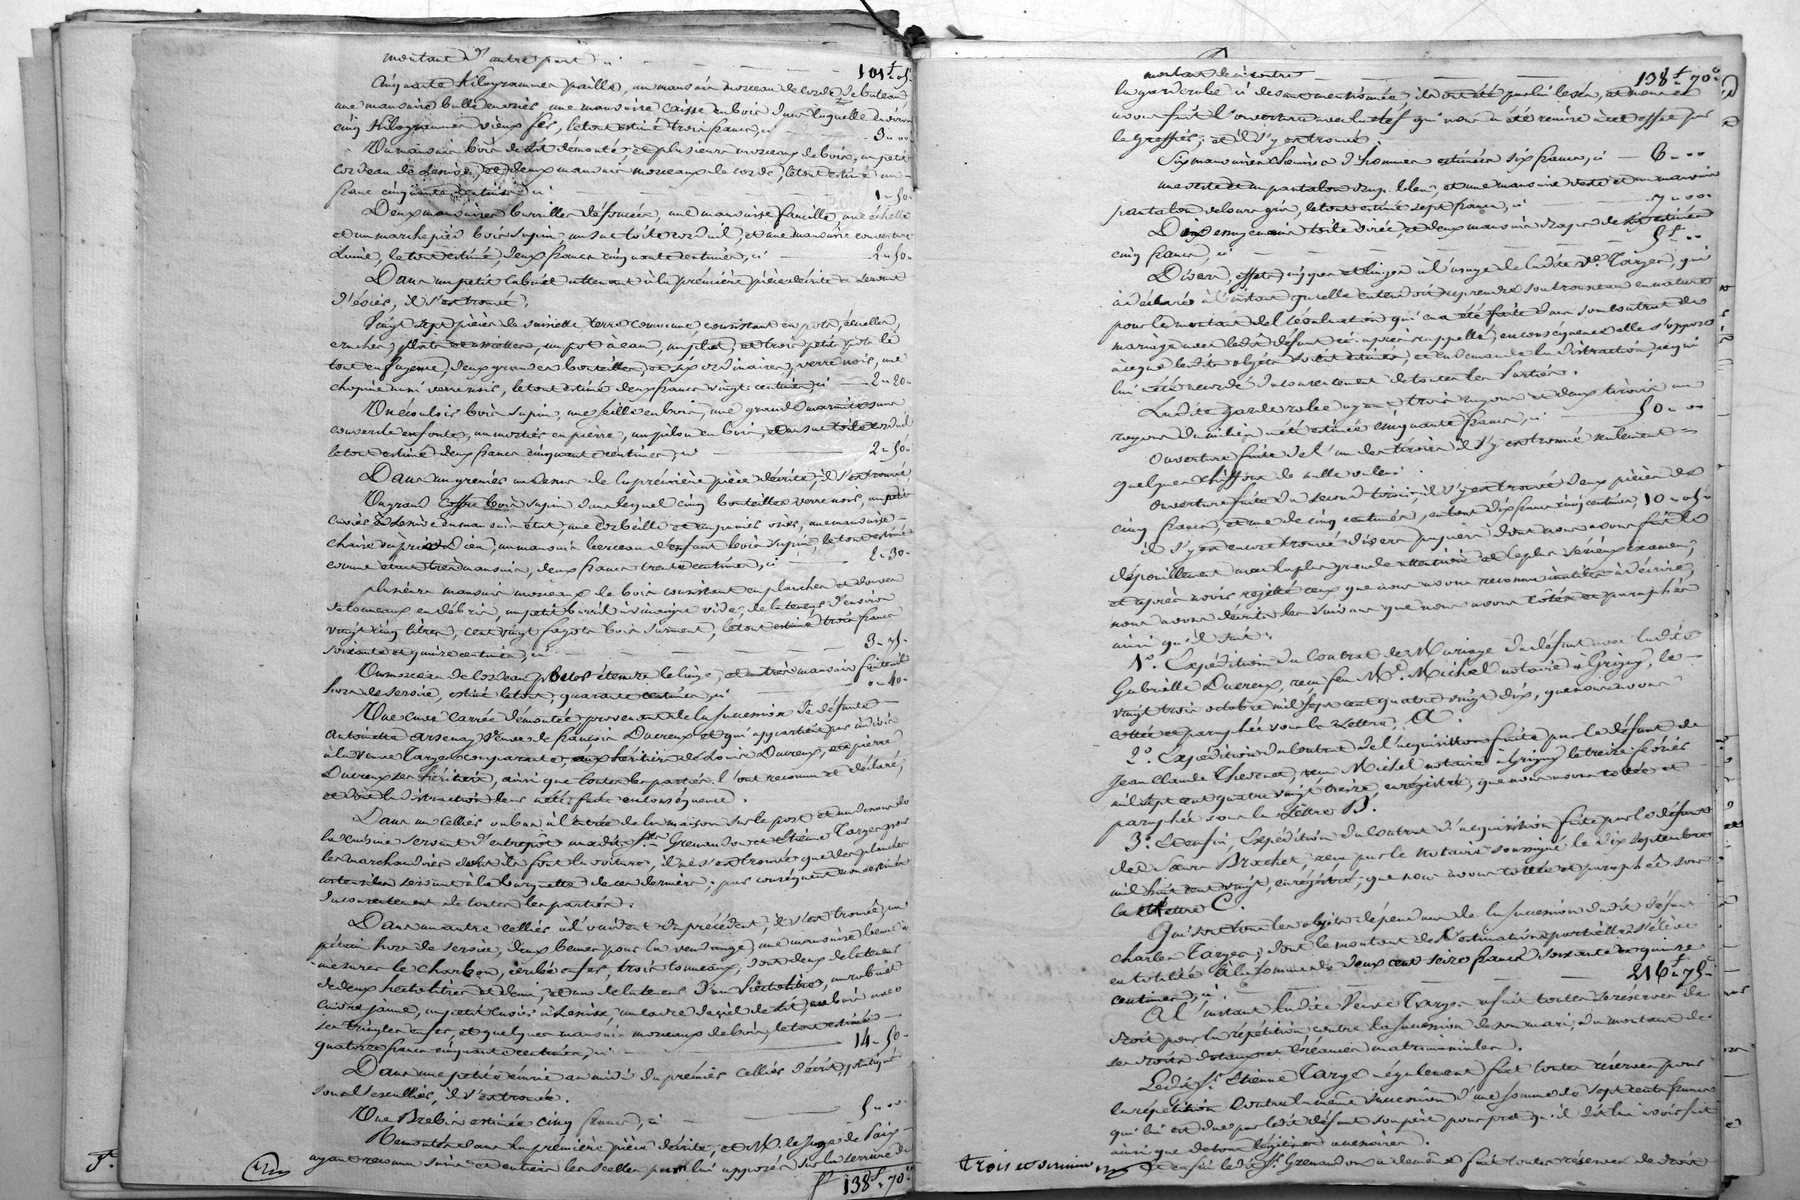 montant d'autre part ci 101f 05
Cinquante Kilogrammes paille, un mauvais morceau de corde de bateau
une mauvaise une mauvaise caisse en bois dans laquelle environ
cinq Kilogrammes vieux fer, le tout estimé trois francs, ci 3 - 00
Un mauvais bois de lit démonté et plusieurs morceaux de bois, un petit
cordeau de et deux mauvais morceaux de corde, le tout estimé un
franc cinquante centimes, ci 1 - 50
Deux mauvaises défoncées, une mauvaise faucille, une échelle
et un marchepied bois sapin un sac toile et une mauvaise couverture
laine, le tout estimé, deux francs cinquante centimes, ci 2 - 50
Dans un petit cabinet attenant à la première pièce décrite et servant
d'évier, il s'est trouvé;
Vingt sept pièces de vaisselle terre commune consistant en pots, écuelles
cruches, plats et assiettes, un pot à eau, un plat, et trois petits pots le
tout en fayence, deux grandes bouteilles, et six ordinaires, verre noir, une
chopine aussi verre noir, le tout estimé deux francs vingt centimes, ci 2 - 20
Un bois sapin, une seille en bois, une grande marmite sans
couvercle en fonte, un mortier en pierre, un pilon en bois, et un sac toile
le tout estimé deux francs cinquante centimes, ci 2 - 50
Dans un grenier au dessus de la première pièce décrite, il s'est trouvé,
Un grand coffre bois sapin dans lequel cinq bouteilles verre noir, un petit
cuvier à lessive en mauvais état, une corbeille et un panier osier, une mauvaise
chaise dit prie Dieu, un mauvais berceau d'enfant bois sapin, le tout estimé
comme étant très mauvais, deux francs trente centimes, ci 2 - 30
plusieurs mauvais morceaux de bois consistant en planches et douves
de tonneaux en débris, un petit barril à vinaigre vide, de la teneur d'environ
vingt cinq litres, cent vingt fagots bois sarment, le tout estimé trois francs
soixante et quinze centimes, ci 3 - 75
Un morceau de cordeau pour étendre le linge, et un très mauvais fauteuil
hors de service, estimé le tout, quarante centimes, ci 0 - 40
Une cuve carrée démontée provenant de la succession de défunte
Antoinette Veuve de françois Ducreux et qui appartient par indivis
à la veuve Targe comparante, aux héritiers de Louis Ducreux, et à pierre
Ducreux ses héritiers, ainsi que toutes les parties l'ont reconnu et déclaré,
en conséquence.
Dans un cellier ou bas à l'entrée de la maison sur le port et au dessous de
la cuisine servant d'entrepôt audit Sr. Grenaudon et Etienne Targe pour
les marchandises dont ils font la voiture, il ne s'est trouvé que des planches
servant à la barquette de ce dernier; par conséquent non estimées
du consentement de toutes les parties.
Dans un autre cellier à l'orient du précédent, il s'est trouvé, un
pétrin hors de service, deux bennes pour la vendange, une mauvaise benne à
mesurer le charbon, cerclée en fer, trois tonneaux, dont deux de la teneur
de deux hectolitres et demi, et un de la teneur d'un hectolitre, un robinet
cuivre jaune, un petit cuvier à lessive, un ciel de lit, en bois avec
ses tringles en fer, et quelques mauvais morceaux de bois, le tout estimé
quatorze francs cinquante centimes, ci 14 - 50
Dans une petite écurie au midi du premier cellier décrit, pratiquée
sous l'escallier, il s'est trouvé.
Une Brebis estimée cinq francs, ci 5 - 00
Remontés dans la première pièce décrite, et M. le Juge de Paix
ayant reconnu sains et entiers les scellés par lui apposés sur la serrure de
138f 70c
montant de ci contre 138f 70c
la garderobe ci dessus mentionnée, ils ont été par lui levés, et nous en
avons fait l'ouverture avec la clef qui nous a été remise à cet effet par
le Greffier; et il s'y est trouvé.
Six mauvaises chemises d'hommes estimées six francs, ci 6 - 00
une veste et un pantalon drap bleu, et une mauvaise veste et un mauvais
pantalon velours gris, le tout estimé sept francs, ci 7 - 00
Deux essuyemain toile cirée, et deux mauvais draps de lit estimés
cinq francs, ci 5f - 00
Divers effets nippes et linges à l'usage de ladite Ve. Targe, qui
a déclaré à l'instant qu'elle entendoit reprendre son trousseau en nature
pour le montant de l'évaluation qui en a été faite dans son contrat de
mariage avec ledit défunt ci-après rappellé; en conséquence elle s'oppose
à ce que lesdits objets soient estimés, et en demande la distraction, ce qui
lui a été accordé du consentement de toutes les Parties.
Ladite garderobe ayant trois rayons et deux tiroirs au
rayon du milieu a été estimée cinquante francs, ci 50 - 00
Ouverture faite de l'un des tiroirs il s'y est trouvé seulement
quelques chiffons de nulle valeur.
Ouverture faite du second tiroir, il s'y est trouvé deux pièces de
cinq francs, et une de cinq centimes, en tout dix francs cinq centimes, 10 - 05
il s'y est encore trouvé divers papiers dont nous avons fait le
dépouillement avec la plus grande attention et le plus sérieux examen,
et après avoir rejetté ceux que nous avons reconnus inutiles à décrire,
nous avons décrits les suivans que nous avons cotés et paraphés
ainsi qu'il suit;
1o. Expédition du Contrat de Mariage du défunt avec ladite
Gabrielle Ducreux, reçu feu Me. Michel notaire à Grigny, le
vingt trois octobre mil sept cent quatre vingt dix, que nous avons
cottée et paraphée sous la Lettre, A.
2o. Expédition du Contrat de l'acquisition faite par le défunt de
Jean Claude Thevenet, reçu Michel notaire à Grigny le treize février
mil sept cent quatre vingt treize, enregistré, que nous avons cottée et
paraphée sous la Lettre B.
3o. Et enfin, Expédition du Contrat d'acquisition faite par le défunt
des Sœurs Brachet, reçu par le Notaire soussigné le dix septembre
mil huit cent vingt, enregistré, que nous avons cottée et paraphée sous
la Lettre C.
Qui sont tous les objets dépendans de la succession dudit défunt
charles Targe, dont le montant de l'estimation partielle s'élève
en totalité à la somme de deux cent seize francs soixante et quinze
centimes, ci 216f 75c
A l'instant ladite Veuve Targe a fait toutes réserves de
droit pour la répétition contre la succession de son mari, du montant de
ses droits dotaux et créances matrimoniales.
Ledit Sr. Etienne Targe a également fait toutes réserves pour
la répétition contre la même succession d'une somme de sept cents francs
qui lui est due par ledit défunt son père pour prêt qu'il dit lui avoir fait
ainsi que de tous légitimes accessoires.
Et enfin ledit Sr. Grenaudon a de même fait toutes réserves de droit